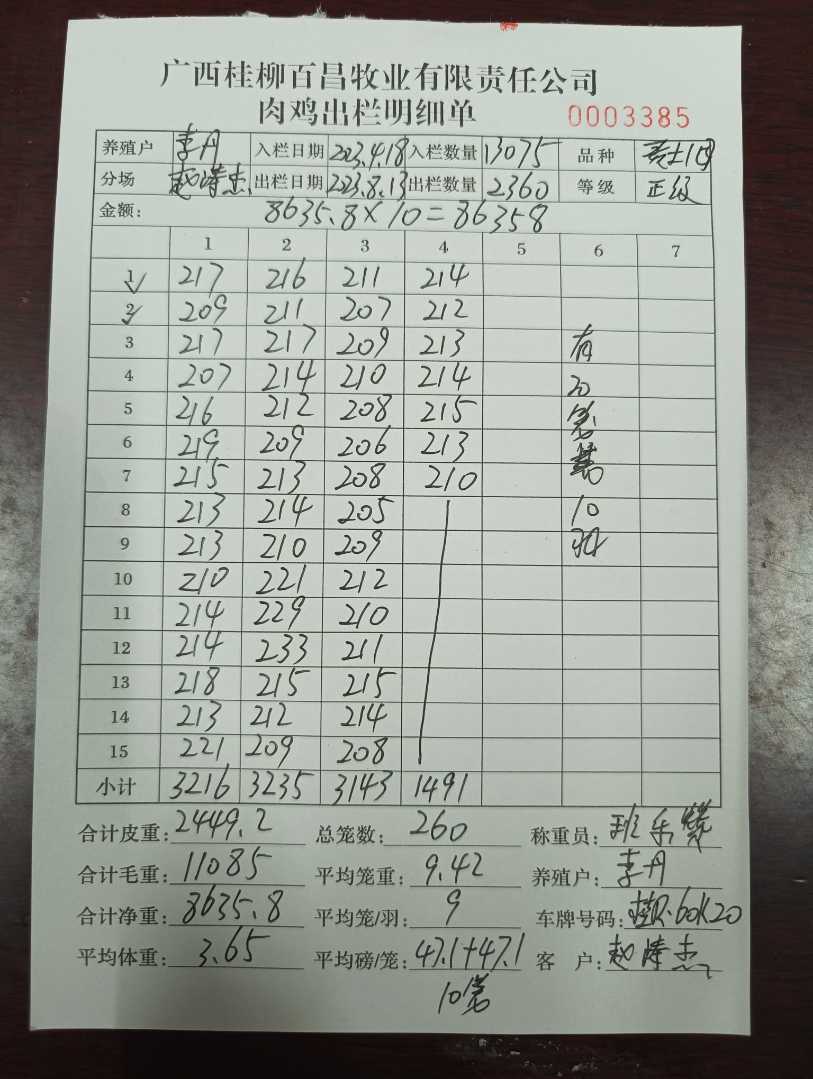 广西桂柳百昌牧业有限责任公司
肉鸡出栏明细单 0003385
养殖户 李丹 入栏日期 2023.4.18 入栏数量 13075 品种
分场 赵海杰 出栏日期 2023.8.13 出栏数量 2360 等级 正级
金额: 8635.8×10=86358
1 2 3 4 5 6 7
1 217 216 211 214
2 209 211 207 212
3 217 217 209 213 有
4 207 214 210 214 20
5 216 212 208 215 笼
6 219 209 206 213 装
7 215 213 208 210
8 213 214 205 10
9 213 210 209 羽
10 210 221 212
11 214 229 210
12 214 233 211
13 218 215 215
14 213 212 214
15 221 209 208
小计 3216 3235 3143 1491
合计皮重: 2449.2 总笼数: 260 称重员: 班乐
合计毛重: 11085 平均笼重: 9.42 养殖户: 李丹
合计净重: 8635.8 平均笼/羽: 9 车牌号码: 桂R·60K20
平均体重: 3.65 平均磅/笼: 47.1+47.1 客户: 赵海杰
10笼